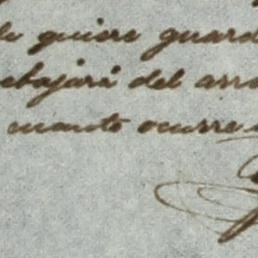 le quiere guard
ebajará del arr
cuanto ocurre